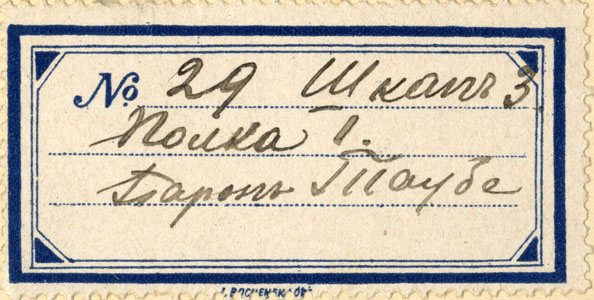 № 29 Шкапъ 3.
Полка 1.
Баронъ Таубе